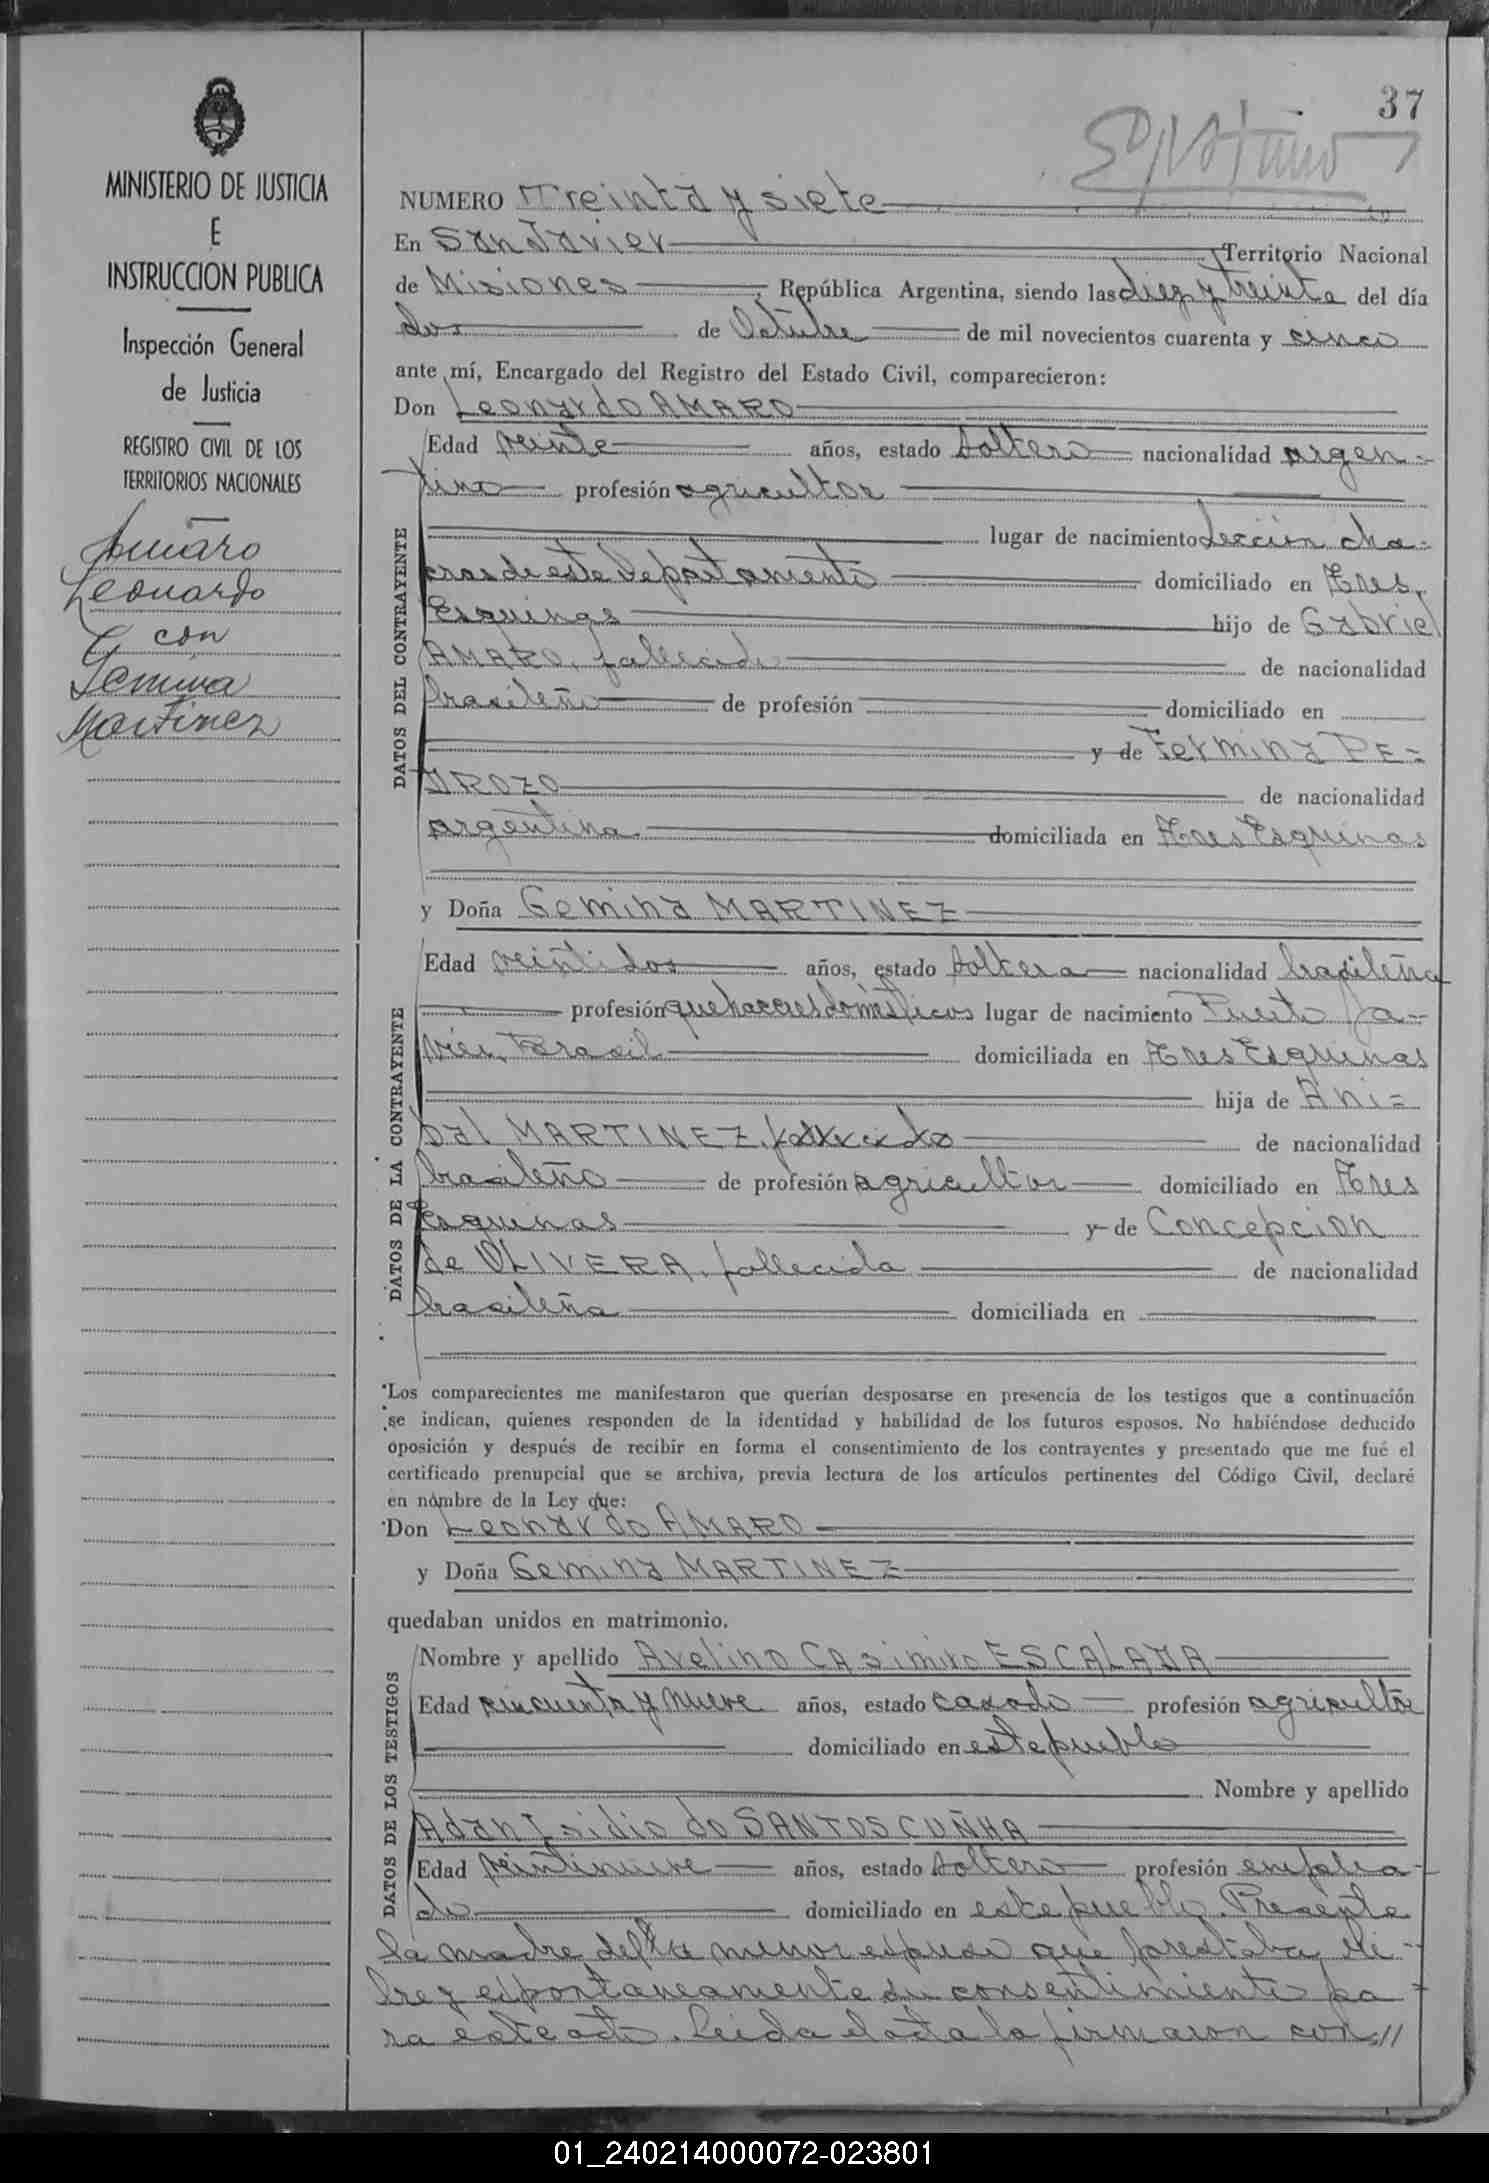 37
MINISTERIO DE JUSTICIA
E
INSTRUCCION PUBLICA
Inspección General
de Justicia
REGISTRO CIVIL DE LOS
TERRITORIOS NACIONALES
Amaro
Leonardo
con
Gemina
Martinez
NUMERO Treinta y siete
En San Javier Territorio Nacional
de Misiones, República Argentina, siendo las diez y treinta del día
dos de Octubre de mil novecientos cuarenta y cinco
ante mí, Encargado del Registro del Estado Civil, comparecieron:
Don Leonardo AMARO
DATOS DEL CONTRAYENTE
Edad veinte años, estado soltero nacionalidad argen-
tino profesión agricultor
lugar de nacimiento Sección cha-
cras de este Departamento domiciliado en Tres
Esquinas hijo de Gabriel
AMARO, fallecido de nacionalidad
brasileño de profesión domiciliado en
y de Fermina PE-
DROZO de nacionalidad
argentina domiciliada en Tres Esquinas
y Doña Gemina MARTINEZ
DATOS DE LA CONTRAYENTE
Edad veintidos años, estado soltera nacionalidad brasileña
profesión quehaceres domésticos lugar de nacimiento Puerto Ja-
vier, Brasil domiciliada en Tres Esquinas
hija de Ani-
bal MARTINEZ, de nacionalidad
brasileño de profesión agricultor domiciliado en Tres
Esquinas y de Concepcion
de OLIVERA, fallecida de nacionalidad
brasileña domiciliada en
Los comparecientes me manifestaron que querían desposarse en presencia de los testigos que a continuación
se indican, quienes responden de la identidad y habilidad de los futuros esposos. No habiéndose deducido
oposición y después de recibir en forma el consentimiento de los contrayentes y presentado que me fué el
certificado prenupcial que se archiva, previa lectura de los artículos pertinentes del Código Civil, declaré
en nombre de la Ley que:
Don Leonardo AMARO
y Doña Gemina MARTINEZ
quedaban unidos en matrimonio.
DATOS DE LOS TESTIGOS
Nombre y apellido Avelino Casimiro ESCALADA
Edad cincuenta y nueve años, estado casado profesión agricultor
domiciliado en este pueblo
Nombre y apellido
Adan Isidio do SANTOS CUÑHA
Edad veintinueve años, estado soltero profesión emplea-
do domiciliado en este pueblo. Presente
la madre del menor expuso que prestaba li-
bre y espontaneamente su consentimiento pa-
ra este acto. Leida el acta la firmaron con//
01_240214000072-023801